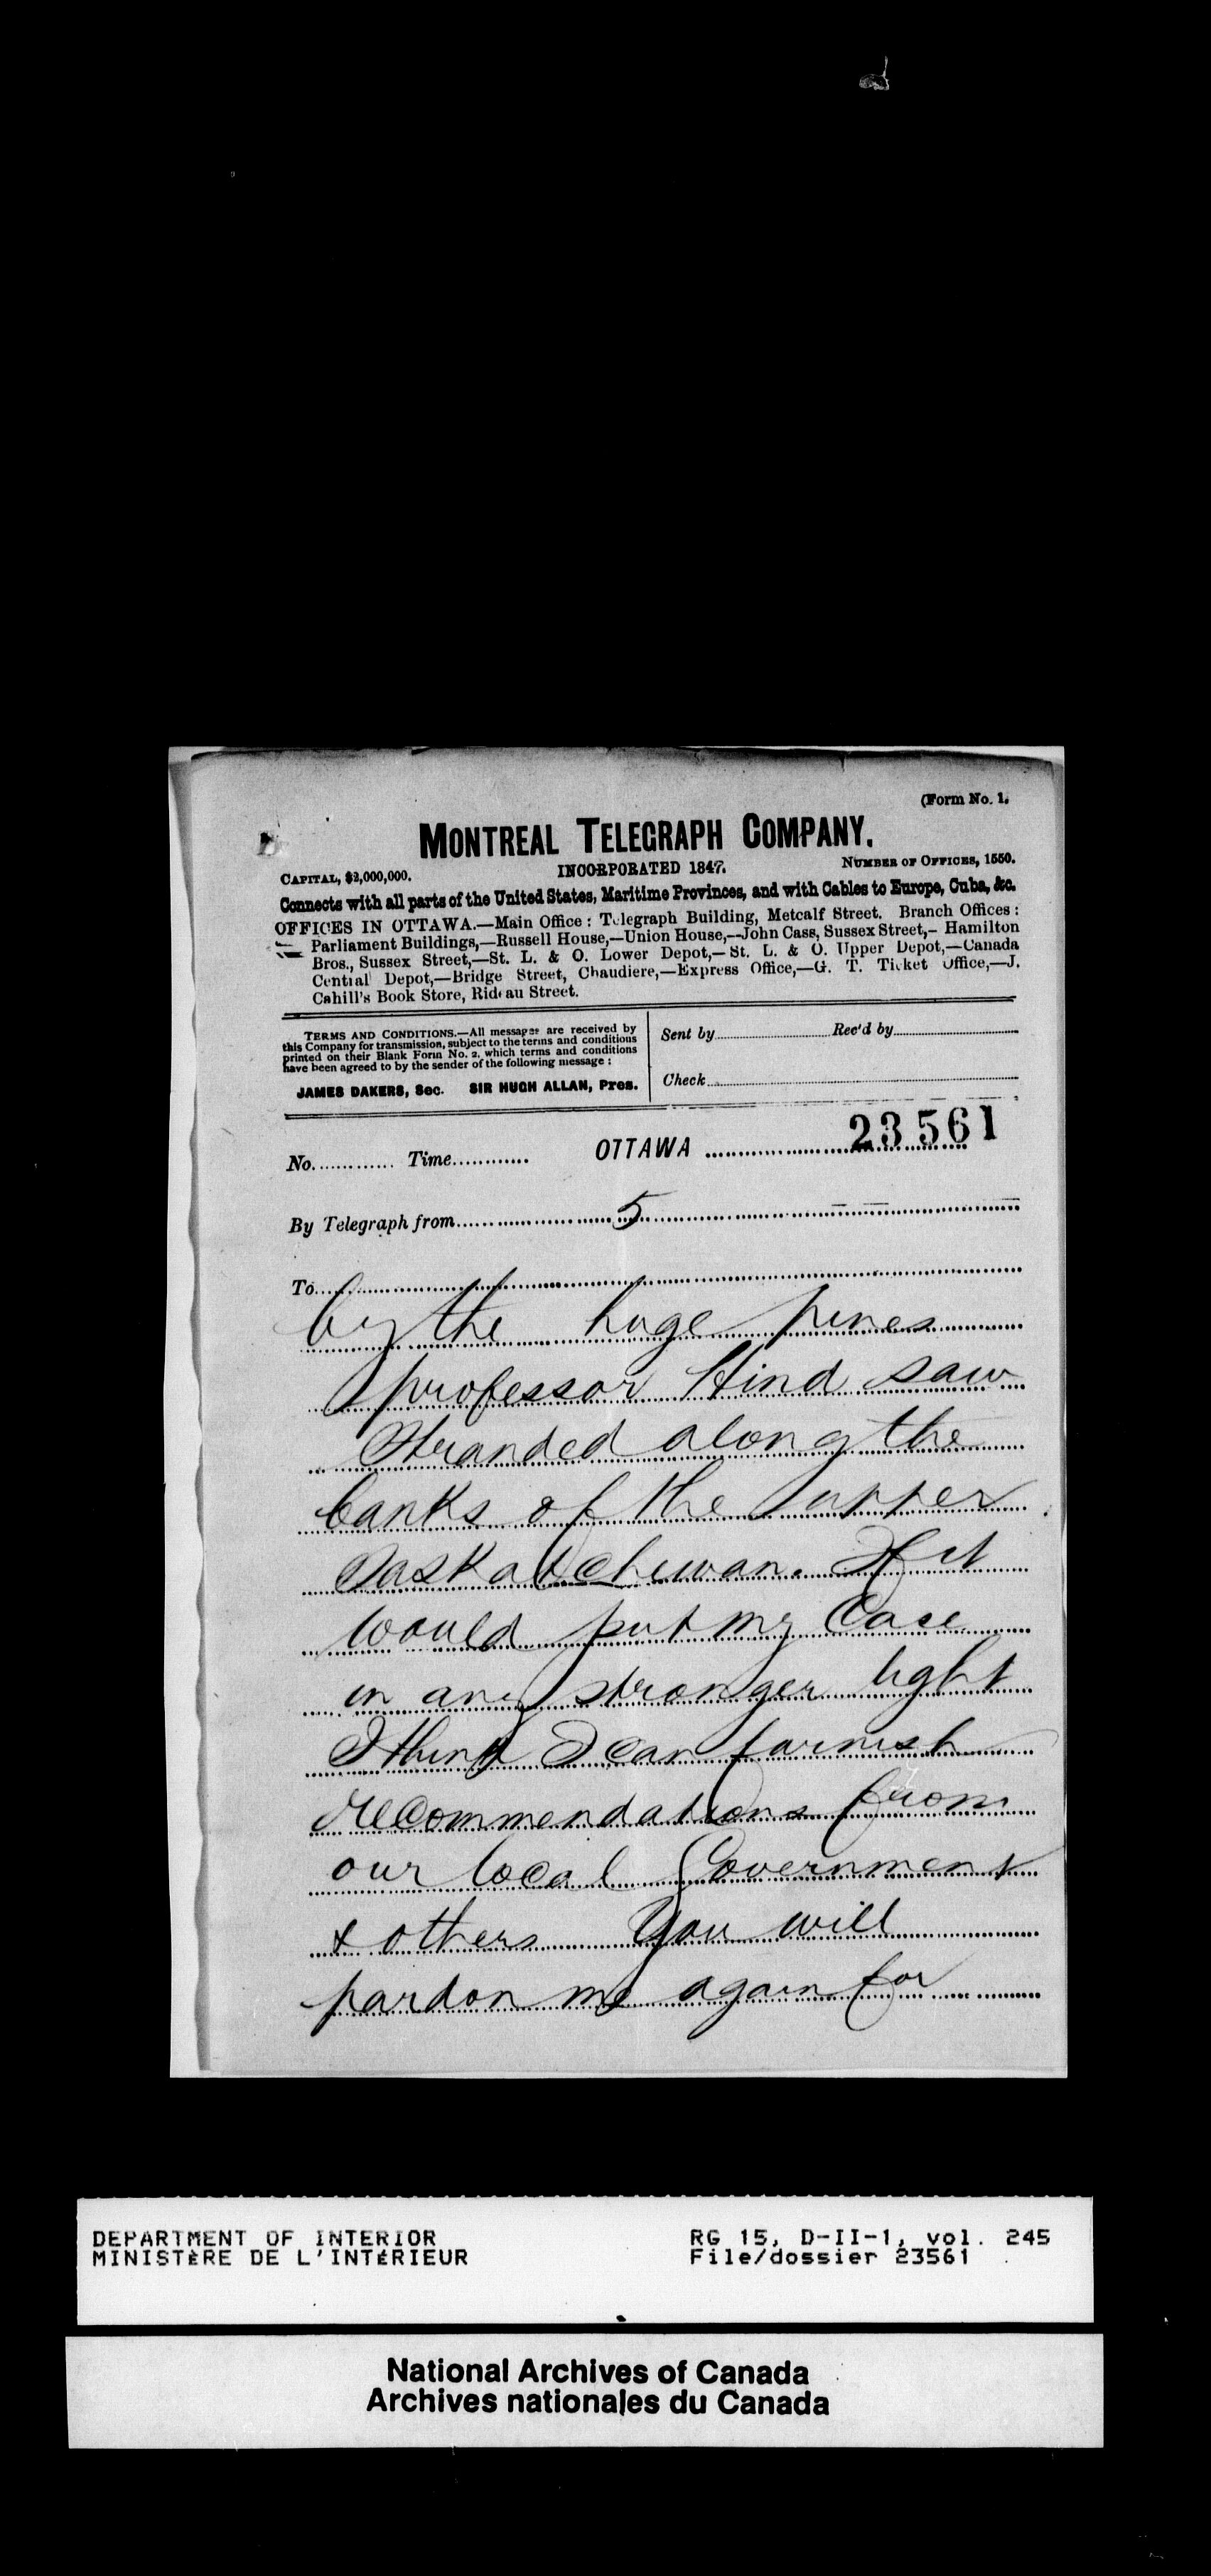 (Form No. 1.
MONTREAL TELEGRAPH COMPANY.
CAPITAL, $2,000,000. INCORPORATED 1847. NUMBER OF OFFICES, 1550.
Connects with all parts of the United States, Maritime Provinces, and with Cables to Europe, Cuba, &c.
OFFICES IN OTTAWA.—Main Office: Telegraph Building, Metcalf Street. Branch Offices:
Parliament Buildings,—Russell House,—Union House,—John Cass, Sussex Street,—Hamilton
Bros., Sussex Street,—St. L. & O. Lower Depot,—St. L. & O. Upper Depot,—Canada
Central Depot,—Bridge Street, Chaudiere,—Express Office,—G. T. Ticket Office,—J.
Cahill's Book Store, Rideau Street.
TERMS AND CONDITIONS.—All messages are received by
this Company for transmission, subject to the terms and conditions
printed on their Blank Form No. 2, which terms and conditions
have been agreed to by the sender of the following message:
JAMES DAKERS, Sec. SIR HUGH ALLAN, Pres.
Sent by Rec'd by
Check
23561
No. Time OTTAWA
By Telegraph from 5
To
by the huge pines
professor Hind saw
stranded along the
banks of the upper
Saskatchewan. If it
would put my Case
in any stronger light
I think I can furnish
recommendations from
our local Government
& others You will
pardon me again for
DEPARTMENT OF INTERIOR
MINISTÈRE DE L'INTÉRIEUR
RG 15, D-II-1, vol. 245
File/dossier 23561
National Archives of Canada
Archives nationales du Canada